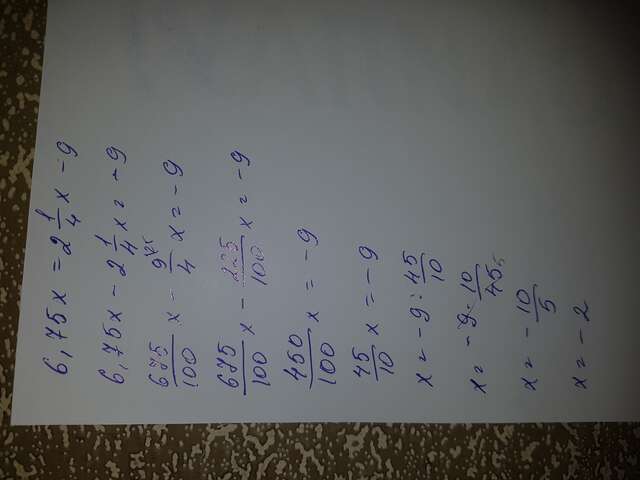 6,75x = 2 1/4 x - 9
6,75x - 2 1/4 x = -9
675/100 x - 9/4 ^25 x = -9
675/100 x - 225/100 x = -9
450/100 x = -9
45/10 x = -9
x = -9 : 45/10
x = -9 · 10/45 5
x = - 10/5
x = -2